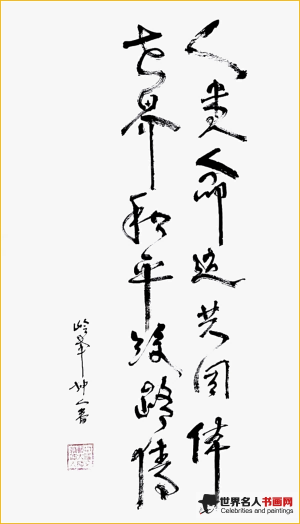 人类命运共同体
世界和平路情
世界名人书画网
Celebrities and paintings